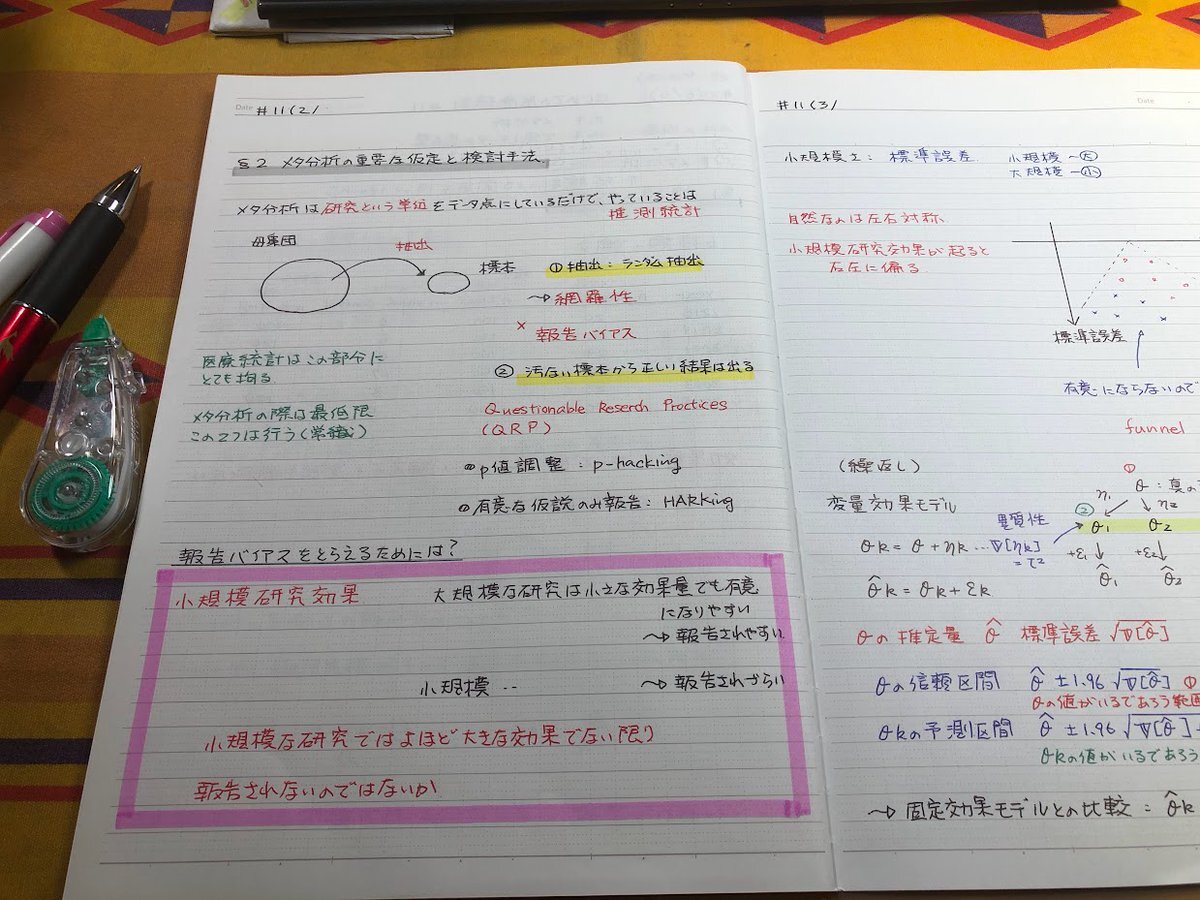 Date #11(2)
§2 メタ分析の重要な仮定と検討手法
メタ分析は研究という単位をデータ点にしているだけで、やっていることは
推測統計
母集団
抽出
標本
① 抽出：ランダム抽出
〜→ 網羅性
× 報告バイアス
医療統計はこの部分に
とても拘る
② 汚ない標本から正しい結果は出る
メタ分析の際は最低限
この2つは行う(常識)
Questionable Reserch Practices
(QRP)
p値調整：p-hacking
有意な仮説のみ報告：HARKing
報告バイアスをとらえるためには？
小規模研究効果
大規模な研究は小さな効果量でも有意
になりやすい
〜→ 報告されやすい
小規模 ‥
〜→ 報告されづらい
小規模な研究ではよほど大きな効果でない限り
報告されないのではないか
#11(3)
Date
小規模さ：標準誤差
小規模 〜大
大規模 〜小
自然なのは左右対称、
小規模研究効果が起ると
左に偏る
標準誤差
有意にならないので
funnel
(繰返し)
変量効果モデル
異質性
① θ：真の
η1 η2
② θ1 θ2
θk = θ + ηk … V[ηk]
= τ2
+ε1 +ε2
θ̂1 θ̂2
θ̂k = θk + εk
θの推定量 θ̂ 標準誤差 √V[θ̂]
θの信頼区間 θ̂ ±1.96 √V[θ̂] ①
θの値がいるであろう範囲
θkの予測区間 θ̂ ±1.96 √V[θ̂]
θkの値がいるであろう
〜→ 固定効果モデルとの比較：θ̂k